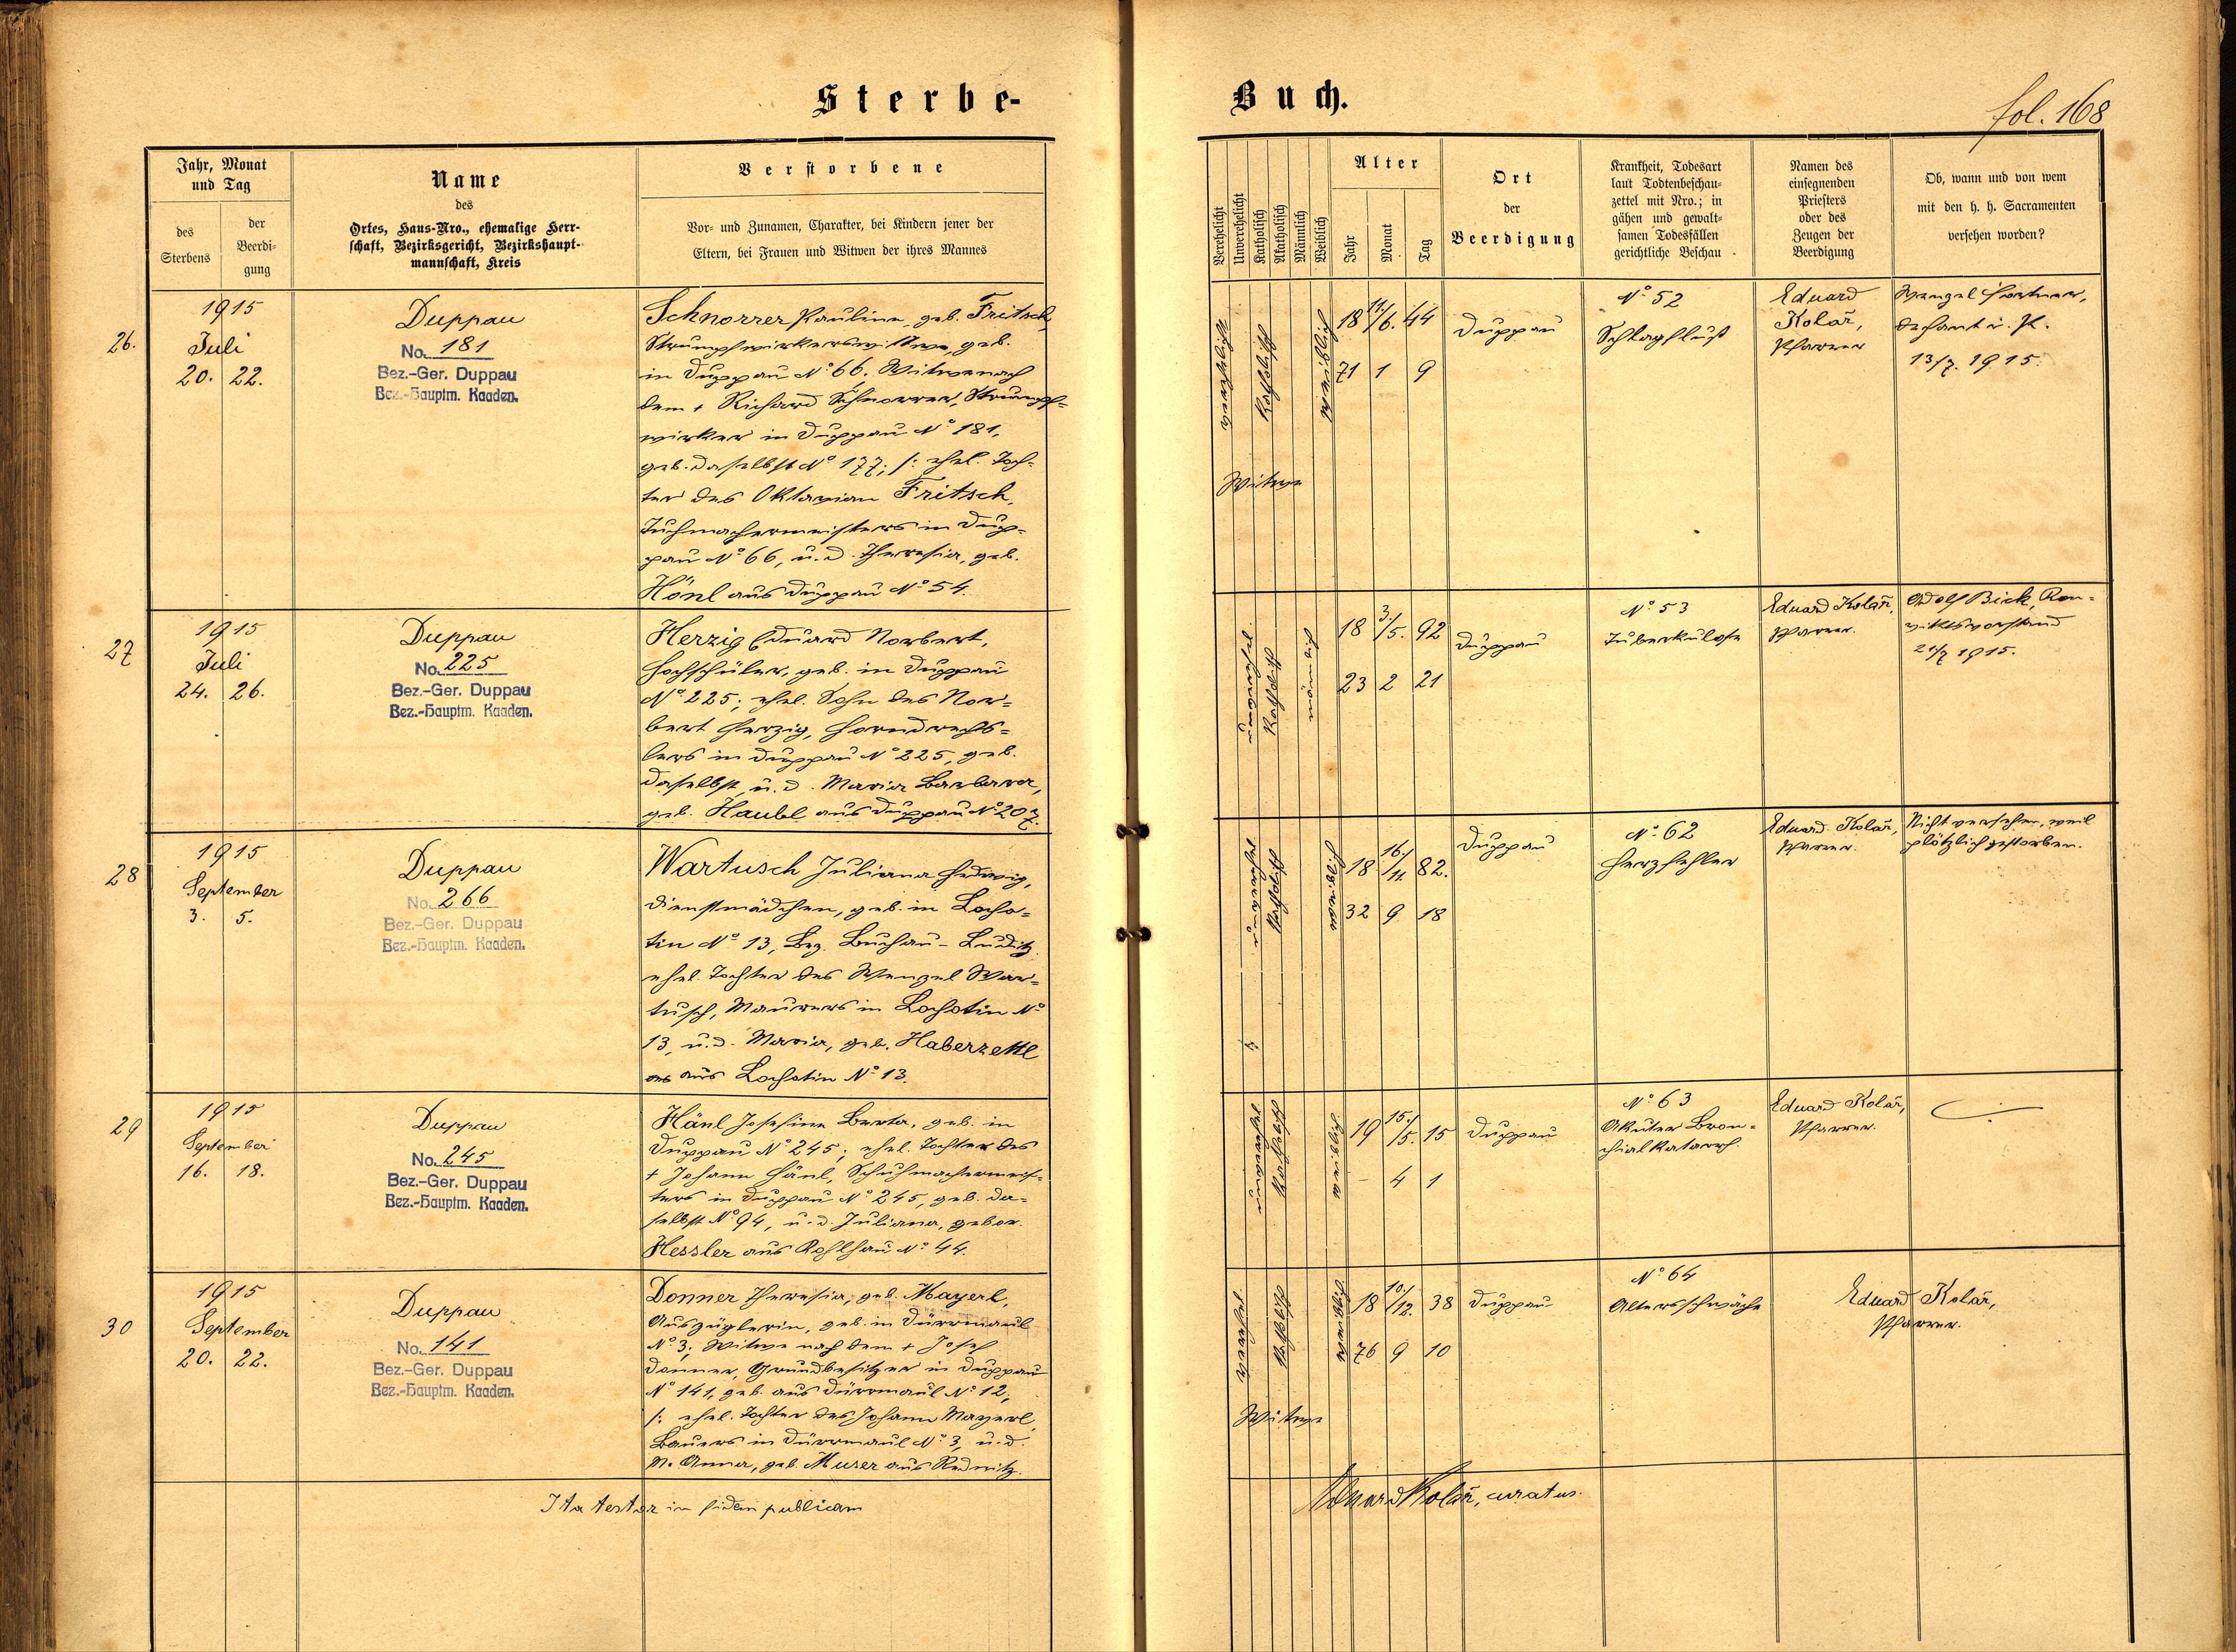 Sterbe-
Buch.
fol. 168
Jahr, Monat
und Tag
des
Sterbens
der
Beerdi-
gung
Name
des
Ortes, Haus-Nro., ehemalige Herr-
schaft, Bezirksgericht, Bezirkshaupt-
mannschaft, Kreis
Verstorbene
Vor- und Zunamen, Charakter, bei Kindern jener der
Eltern, bei Frauen und Witwen der ihres Mannes
Verehelicht
Unverehelicht
Katholisch
Akatholisch
Männlich
Weiblich
Alter
Jahr
Monat
Tag
Ort
der
Beerdigung
Krankheit, Todesart
laut Todtenbeschau-
zettel mit Nro.; in
gähen und gewalt-
samen Todesfällen
gerichtliche Beschau
Namen des
einsegnenden
Priesters
oder des
Zeugen der
Beerdigung
Ob, wann und von wem
mit den h. h. Sacramenten
versehen worden?
26.
1915
Juli
20. 22.
Duppau
No. 181
Bez.-Ger. Duppau
Bez.-Hauptm. Kaaden.
Schnorrer Pauline, geb. Fritsch,
Strumpfwirkerswittwe, geb.
in Duppau No 66. Witwe nach
dem + Richard Schnorrer, Strumpf-
wirker in Duppau No 181,
geb. daselbst No 177; /: ehel. Toch-
ter des Oktavian Fritsch,
Tuchmachermeisters in Dup-
pau No 66, u. d. Theresia, geb.
Hönl aus Duppau No 54.
verehelicht
Witwe
katholisch
weiblich
18 11/6. 44
71 1 9
Duppau
No 52
Schlagfluß
Eduard
Kolář,
Pfarrer
Wenzel Hortner,
Dechant i. P.
13/7. 1915.
27
1915
Juli
24. 26.
Duppau
No. 225
Bez.-Ger. Duppau
Bez.-Hauptm. Kaaden.
Herzig Eduard Norbert,
Hochschüler, geb. in Duppau
No 225; ehel. Sohn des Nor-
bert Herzig, Horndrechs-
lers in Duppau No 225, geb.
daselbst, u. d. Maria Barbara,
geb. Haubl aus Duppau No 207.
unverehel.
katholisch
männlich
18 3/5. 92
23 2 21
Duppau
No 53
Tuberkulose
Eduard Kolář,
Pfarrer.
Adolf Bick, Kon-
viktsvorstand
21/7 1915.
28
1915
September
3. 5.
Duppau
No. 266
Bez.-Ger. Duppau
Bez.-Hauptm. Kaaden.
Wartusch Juliana Hedwig,
Dienstmädchen, geb. in Locho-
tin No 13, Bez. Buchau-Luditz
ehel. Tochter des Wenzel War-
tusch, Maurers in Lochotin No
13, u. d. Maria, geb. Haberzettl
aus Lochotin No 13.
unverehel
katholisch
weiblich
18 16./11. 82.
32 9 18
Duppau
No 62
Herzfehler
Eduard Kolář,
Pfarrer.
Nicht versehen, weil
plötzlich gestorben.
29
1915
September
16. 18.
Duppau
No. 245
Bez.-Ger. Duppau
Bez.-Hauptm. Kaaden.
Hänl Josefine Berta, geb. in
Duppau No 245; ehel. Tochter des
+ Johann Hänl, Schuhmachermeis-
ters in Duppau No 245, geb. da-
selbst No 94, u. d. Juliana, gebor.
Hessler aus Kohlhau No 44.
unverehel
katholisch
weiblich
19 15./5. 15
- 4 1
Duppau
No 63
Akuter Bron-
chialkatarrh.
Eduard Kolář,
Pfarrer.
30
1915
September
20. 22.
Duppau
No. 141
Bez.-Ger. Duppau
Bez.-Hauptm. Kaaden.
Donner Theresia, geb. Mayerl,
Auszüglerin, geb. in Dürrmaul
No 3; Witwe nach dem + Josef
Donner, Grundbesitzer in Duppau
No 141, geb. aus Dürrmaul No 12;
/: ehel. Tochter des Johann Mayerl,
Bauers in Dürrmaul No 3, u. d.
M. Anna, geb. Muser aus Redwitz.
verehel
Witwe
katholisch
weiblich
18 10./12. 38
76 9 10
Duppau
No 64
Altersschwäche
Eduard Kolář,
Pfarrer.
Ita testor in fidem publicam
Eduard Kolář, curatus.